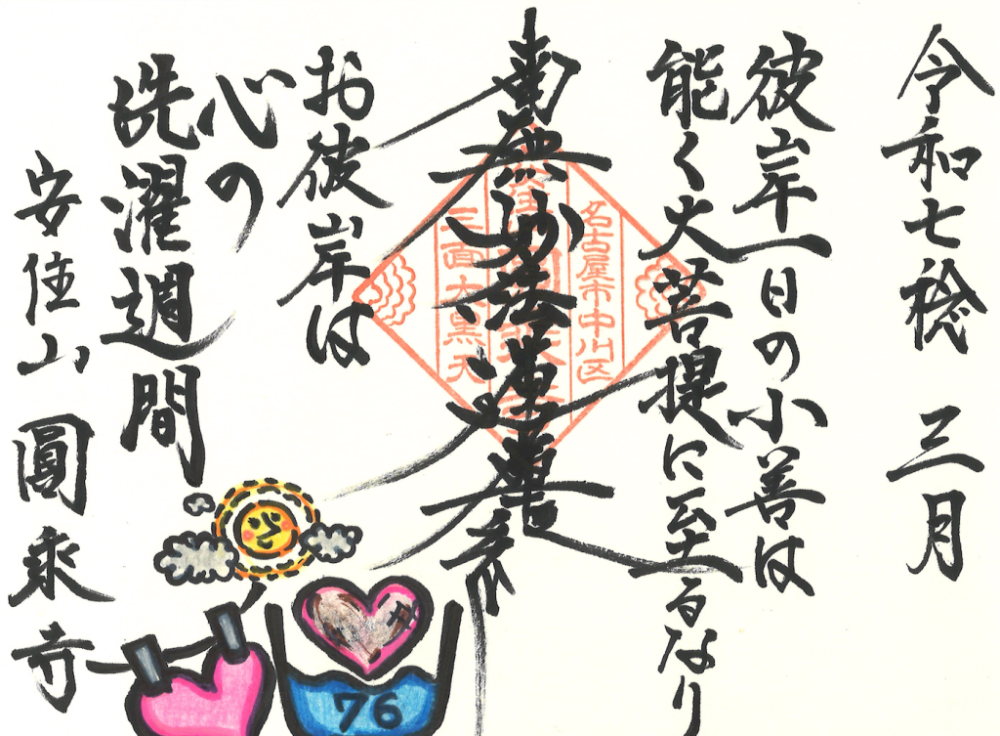 令和七稔 三月
彼岸一日の小善は
能く大菩提に至るなり
南無妙法蓮華経
名古屋市中川区
三面大黒天
お彼岸は
心の
洗濯週間
安住山 圓乗寺
76